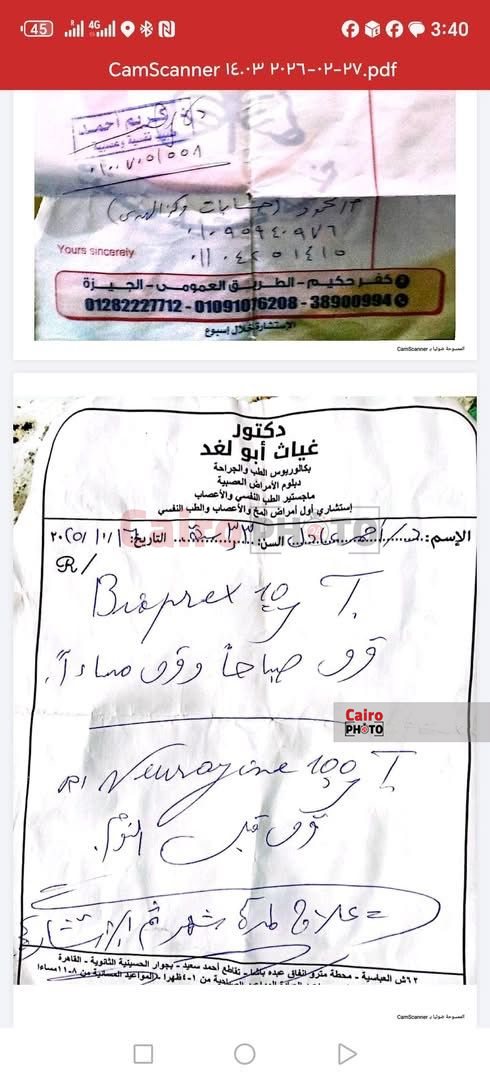 45
4G
R
3:40
CamScanner ١٤.٠٣ ٢٠٢٦-٠٢-٢٧.pdf
احمد
نفسية وعصبية
٠١٠٩٥٩٤٠٩٧٦
٠١١٠٤٢٥١٤١٥
Yours sincerely
كفر حكيم - الطريق العمومى - الجيزة
01282227712 - 01091076208 - 38900994
الإستشارة خلال إسبوع
الممسوحة ضوئيا بـ CamScanner
دكتور
غياث أبو لغد
بكالوريوس الطب والجراحة
دبلوم الأمراض العصبية
ماجستير الطب النفسي والأعصاب
إستشاري أول أمراض المخ والأعصاب والطب النفسي
الإسم: السن: ٣٣ سنة التاريخ:
R/
Cairo PHOTO
Bioprex 10 mg T.
قرص صباحاً وقرص مساءاً.
Cairo
PHOTO
R/ Neurazine 100 mg T.
قرص قبل النوم.
= علاج لمدة شهر ثم الإستشارة
٦٢ ش العباسية - محطة مترو انفاق عبده باشا - تقاطع أحمد سعيد - بجوار الحسينية الثانوية - القاهرة
المواعيد المسائية من ٨-١١ مساءا
الممسوحة ضوئيا بـ CamScanner